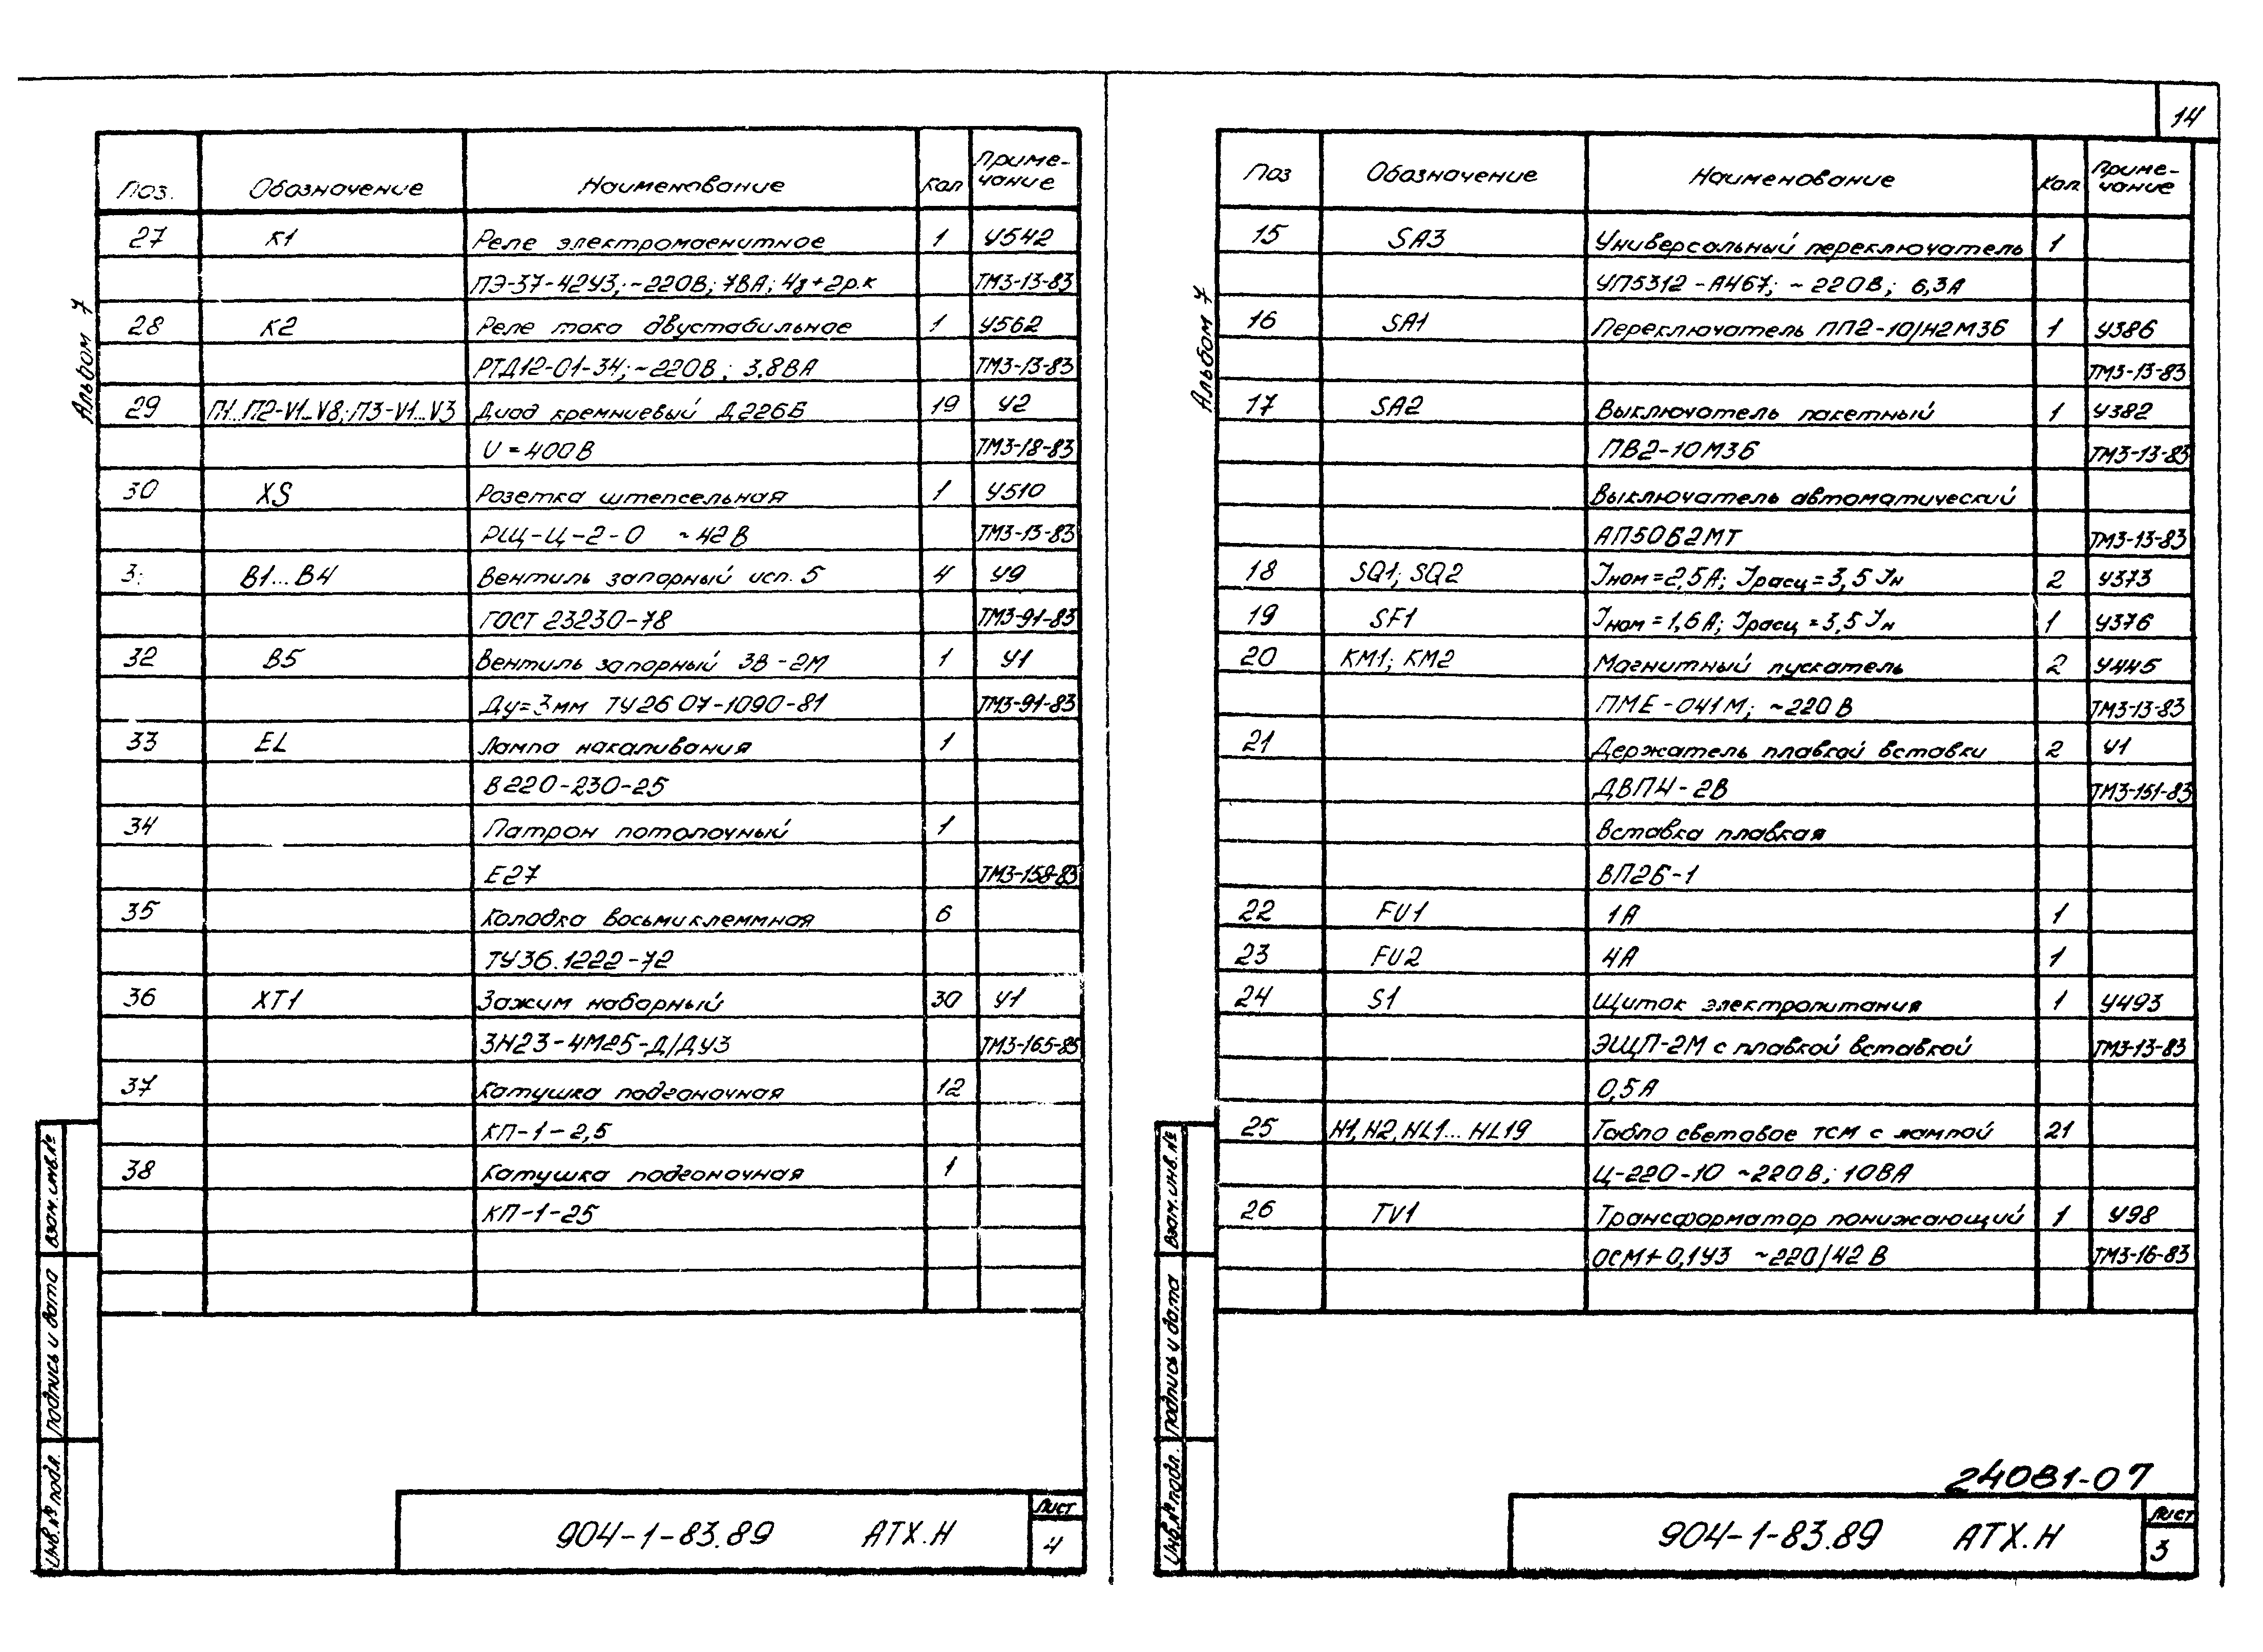 14
Альбом 7
Поз. Обозначение Наименование Кол Приме-
чание
27 К1 Реле электромагнитное 1 У542
ПЭ-37-42У3; ~220В; 7ВА; 4з+2р.к ТМ3-13-83
28 К2 Реле тока двустабильное 1 У562
РТД12-01-34; ~220В; 3.8ВА ТМ3-13-83
29 П1...П2-V1...V8; П3-V1...V3 Диод кремниевый Д226Б 19 У2
U = 400В ТМ3-18-83
30 XS Розетка штепсельная 1 У510
РШ-Ц-2-0 ~42В ТМ3-13-83
3: В1...В4 Вентиль запорный исп. 5 4 У9
ГОСТ 23230-78 ТМ3-91-83
32 В5 Вентиль запорный 3В-2М 1 У1
Ду=3мм ТУ26 07-1090-81 ТМ3-91-83
33 EL Лампа накаливания 1
В220-230-25
34 Патрон потолочный 1
Е27 ТМ3-158-83
35 Колодка восьмиклеммная 6
ТУ36.1222-72
36 XT1 Зажим наборный 30 У1
ЗН23-4М25-Д/ДУ3 ТМ3-165-85
37 Катушка подгоночная 12
КП-1-2,5
38 Катушка подгоночная 1
КП-1-25
Взам.инв.№
Подпись и дата
Инв.№ подл.
904-1-83.89 АТХ.Н
Лист
4
Альбом 7
Поз Обозначение Наименование Кол. Приме-
чание
15 SA3 Универсальный переключатель 1
УП5312-А467; ~220В; 6,3А
16 SA1 Переключатель ПП2-10/Н2М3Б 1 У386
ТМ3-13-83
17 SA2 Выключатель пакетный 1 У382
ПВ2-10М3Б ТМ3-13-83
Выключатель автоматический
АП50Б2МТ ТМ3-13-83
18 SQ1; SQ2 Iном=2,5А; Iрасц=3,5Iн 2 У373
19 SF1 Iном=1,6А; Iрасц=3,5Iн 1 У376
20 КМ1; КМ2 Магнитный пускатель 2 У445
ПМЕ-041М; ~220В ТМ3-13-83
21 Держатель плавкой вставки 2 У1
ДВП4-2В ТМ3-151-83
Вставка плавкая
ВП2Б-1
22 FU1 1А 1
23 FU2 4А 1
24 S1 Щиток электропитания 1 У493
ЭЩП-2М с плавкой вставкой ТМ3-13-83
0,5А
25 Н1, Н2, HL1... HL19 Табло световое ТСМ с лампой 21
Ц-220-10 ~220В; 10ВА
26 TV1 Трансформатор понижающий 1 У98
ОСМ+0,1У3 ~220/42 В ТМ3-16-83
Взам.инв.№
Подпись и дата
Инв.№ подл.
24081-07
904-1-83.89 АТХ.Н
Лист
3